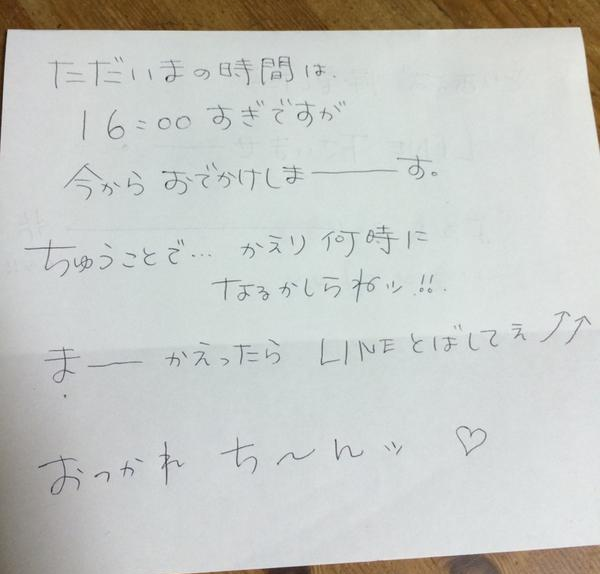 ただいまの時間は、
16:00 すぎですが
今から おでかけしま――す。
ちゅうことで… かえり 何時に
なるかしらねッ!!
ま―― かえったら LINEとばしてぇ↗↗
おつかれ ち〜んッ ♡